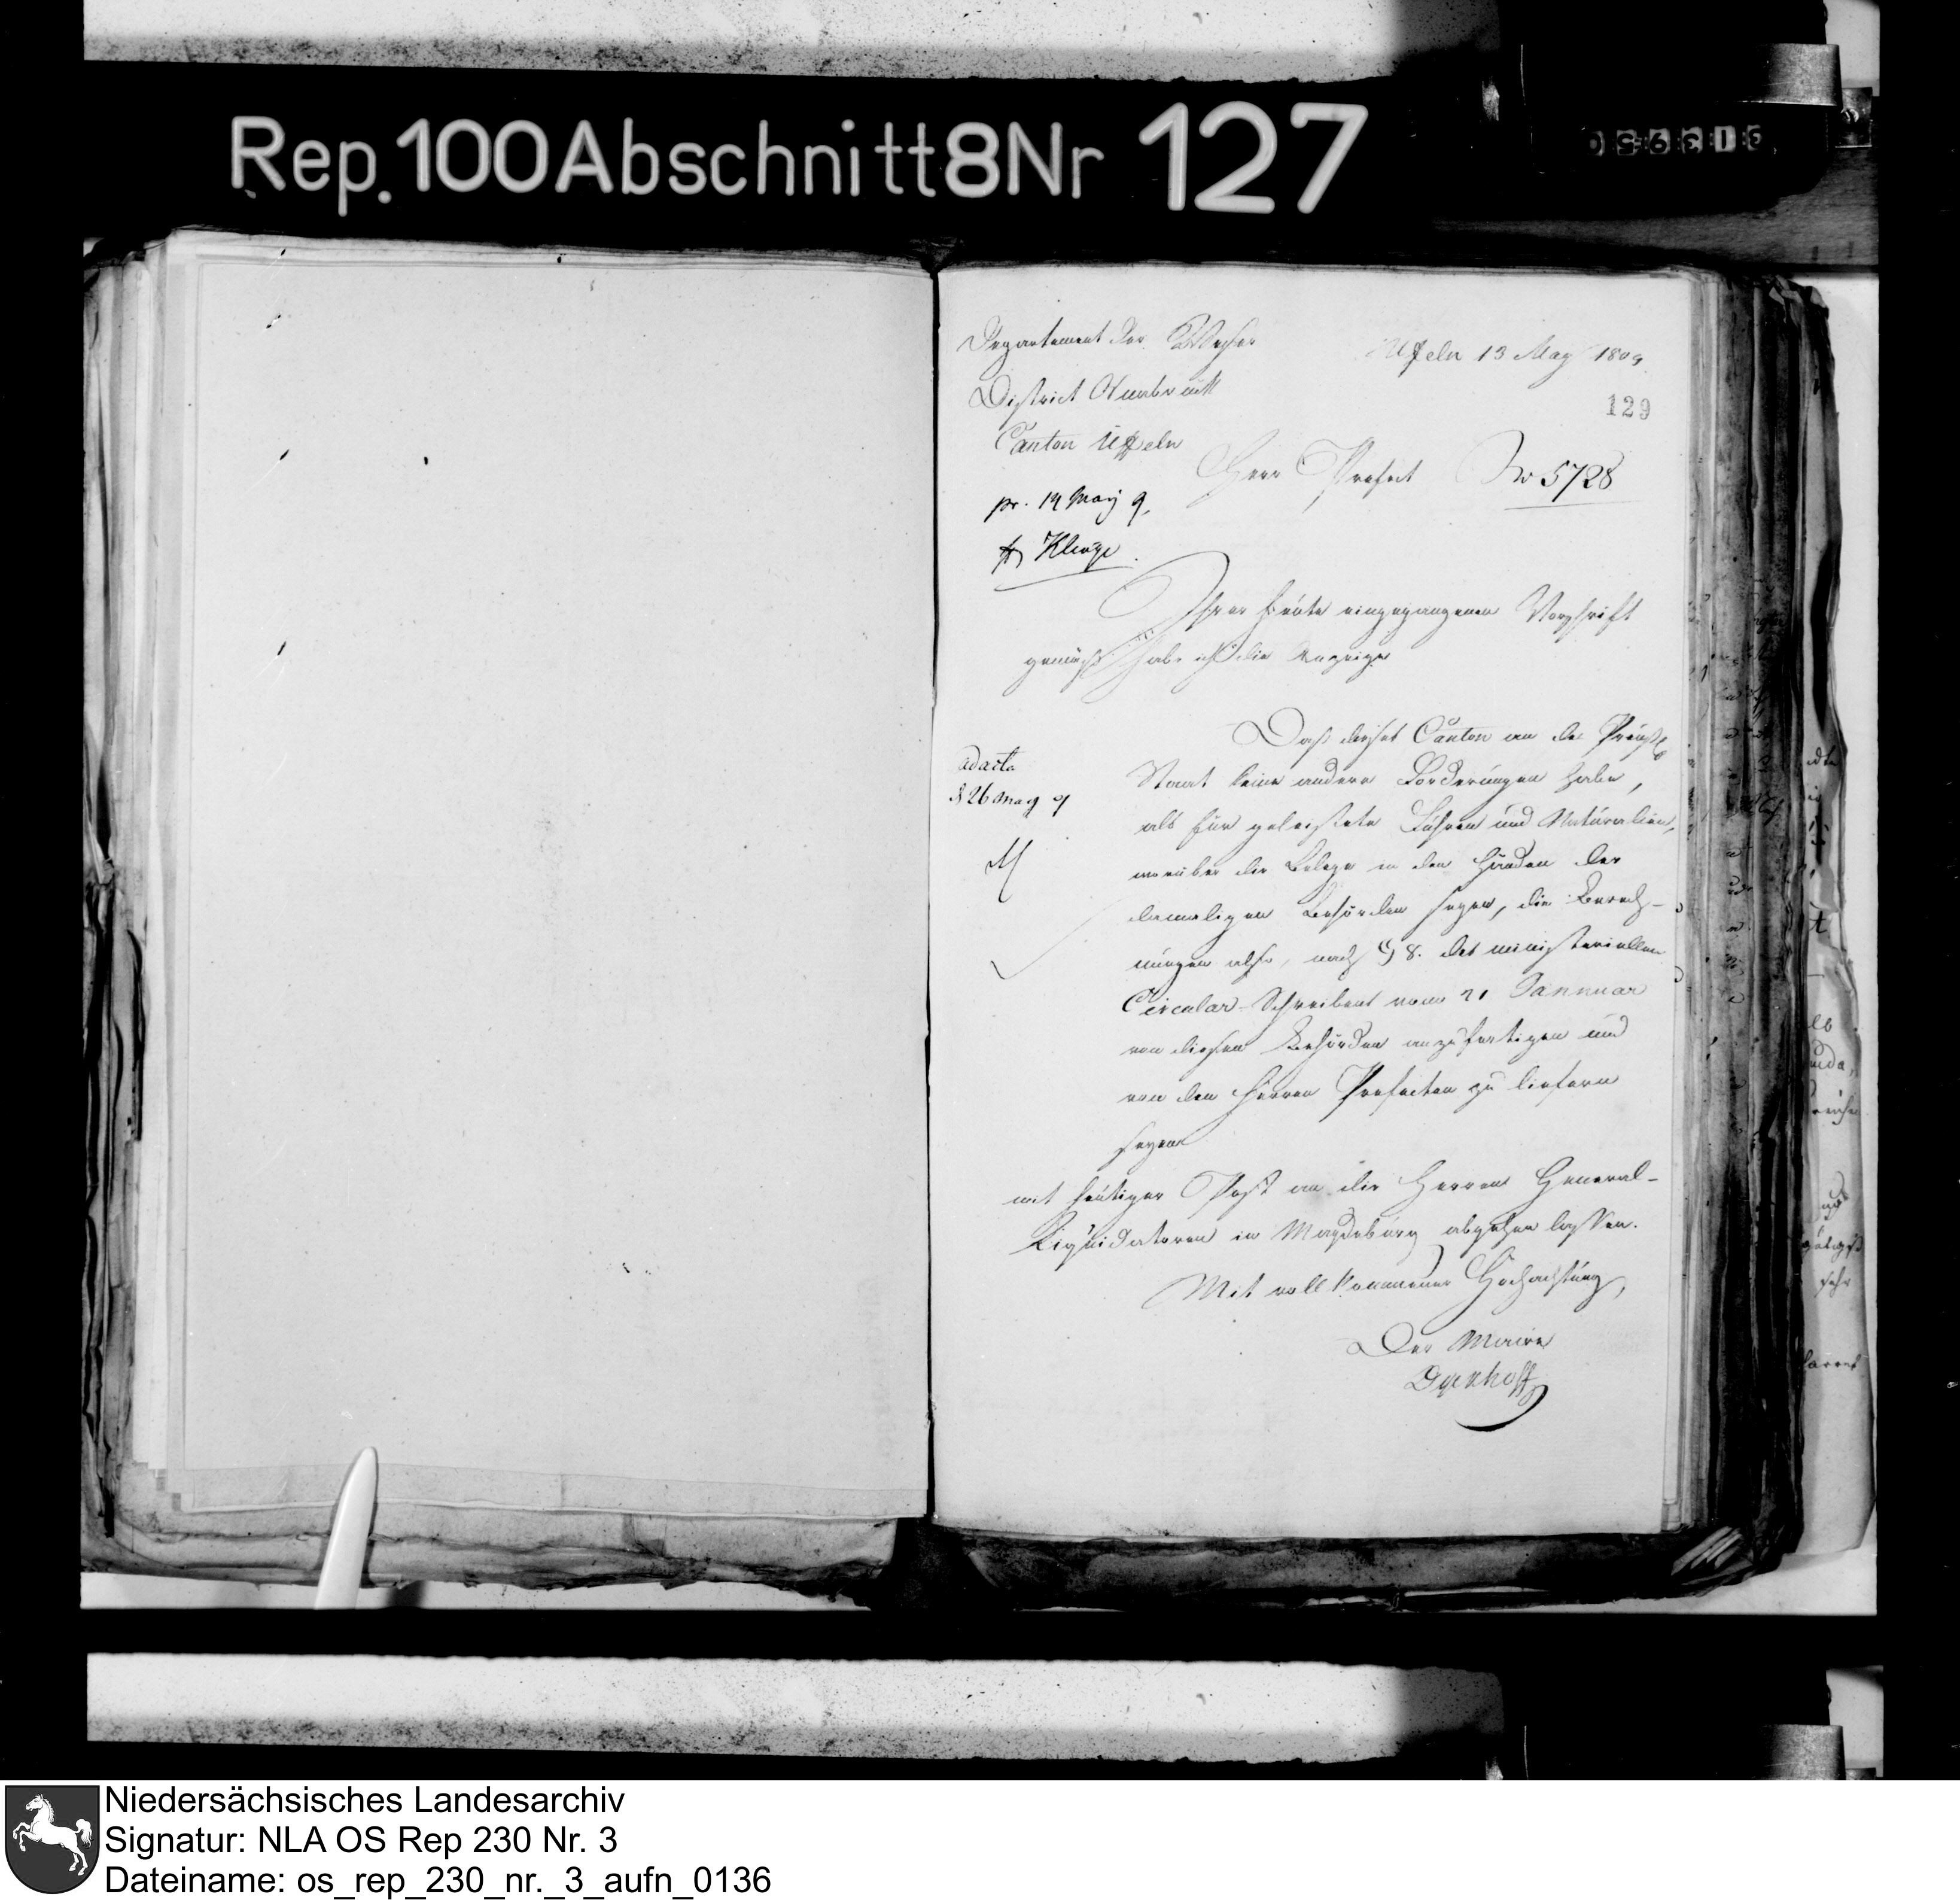 Rep. 100 Abschnitt 8 Nr 127
Departement der Weser
Uffeln 13 May 1809.
District Osnabrück
129
Canton Uffeln
Herr Präfect
No 5728
pr. 14 May 9.
Klinge.
Ihrer heute eingegangenen Vorschrift
gemäß habe ich die Anzeige
Daß dieser Canton an den Preuß.
adacta
Staat keine andere Forderungen habe,
d 26 May 9
als für geleistete Fuhren und Naturalien,
worüber die Belege in den Händen der
damaligen Behörden seyen, die Berech-
nungen also, nach § 8. des ministeriellen
Circular-Schreibens vom 21 Januar
von diesen Behörden anzufertigen und
von den Herren Präfecten zu liefern
seyen
mit heutiger Post an die Herren General-
Liquidatoren in Magdeburg abgehen lassen.
Mit vollkommener Hochachtung,
Der Maire
Dyckhoff
Niedersächsisches Landesarchiv
Signatur: NLA OS Rep 230 Nr. 3
Dateiname: os_rep_230_nr._3_aufn_0136